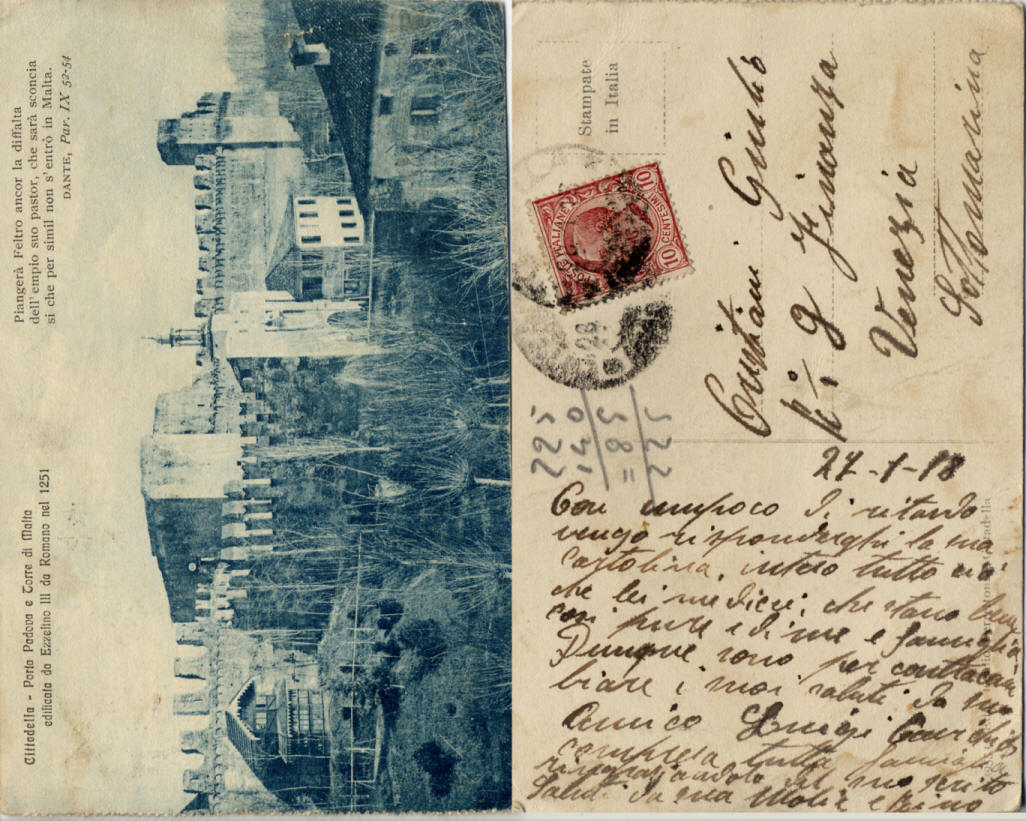 Piangerà Feltro ancor la diffalta
dell' empio suo pastor, che sarà sconcia
sì che per simil non s' entrò in Malta.
DANTE, Par. IX 52-54
Cittadella - Porta Padova e Torre di Malta
edificata da Ezzelino III da Romano nel 1251
Stampate
in Italia
POSTE ITALIANE
10 CENTESIMI 10
28
225
140
85
225
Giulio
Venezia
Sottomarina
27-1-18
Con unpoco di ritardo
vengo risponderghi la sua
cartolina, inteso tutto
che lei me dice; che stano bene
cosi pure di me e famiglia
Dunque sono per contracam
biare i suoi saluti da suo
amico Luigi
compresa tutta famiglia
ringraziandolo del suo scrito
Saluti da sua Molie e